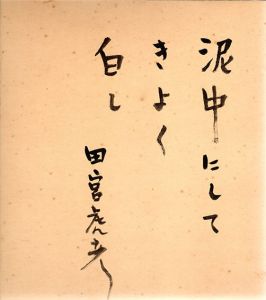 泥中にして
きよく
白し
田宮虎彦